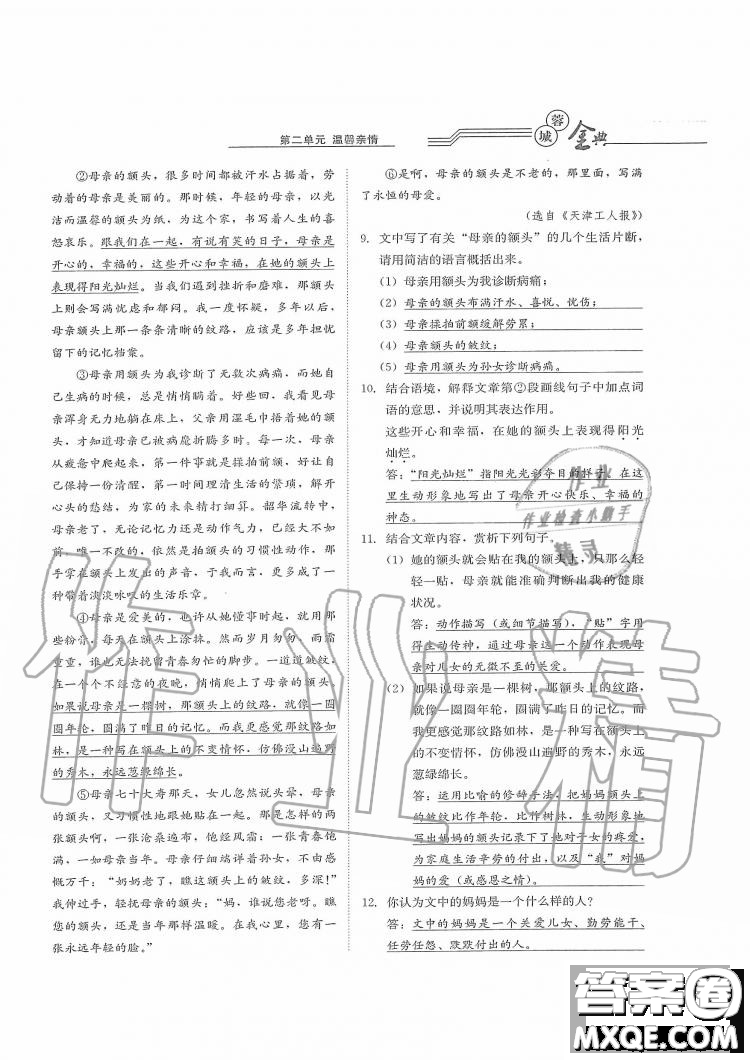 第二单元 温馨亲情
蓉城金典
②母亲的额头，很多时候都被汗水占据着，劳
动着的母亲是美丽的。那时候，年轻的母亲，以光
洁而温馨的额头为纸，为这个家，书写着人生的喜
怒哀乐。跟我们在一起，有说有笑的日子，母亲是
开心的，幸福的，这些开心和幸福，在她的额头上
表现得阳光灿烂。当我们遇到挫折和磨难，那额头
上则会写满忧虑和郁闷。我一度怀疑，多年以后，
母亲额头上那一条条清晰的纹路，应该是多年担忧
留下的记忆档案。
③母亲用额头为我诊断了无数次病痛，而她自
己生病的时候，总是悄悄掩藏着。好些回，我看见母
亲浑身无力地躺在床上，父亲用湿毛巾捂着她的额
头，才知道母亲已被病魔折腾多时。每一次，母亲
从疲惫中爬起来，第一件事就是揉拍前额，好让自
己保持一份清醒，第一时间理清生活的繁琐，解开
心头的愁结，为家的未来精打细算。韶华流转中，
母亲老了，无论记忆力还是动作气力，已经大不如
前，唯一不改的，依然是拍额头的习惯性动作，那
手掌在额头上发出的声音，于我而言，更多成了一
种带着淡淡咏叹的生活乐章。
④母亲是爱美的，也许从她懂事时起，就用那
些粉膏，每天在额头上涂抹。然而岁月匆匆，而霜
重重，谁也无法挽留青春匆忙的脚步。一道道皱纹，
在一个个不经意的夜晚，悄悄爬上了母亲的额头。
如果说母亲是一棵树，那额头上的纹路，就像一圈
圈年轮，圈满了昨日的记忆。而我更感觉那纹路如
林，是一种写在额头上的不变情怀，仿佛漫山遍野
的秀木，永远葱绿绵长。
⑤母亲七十大寿那天，女儿忽然说头晕，母亲
的额头，又习惯性地跟她贴在一起。那么亲近的两
张额头啊，一张沧桑遍布，饱经风霜；一张青春饱
满，一如母亲当年。母亲仔细端详着孙女，不由感
慨万千：“奶奶老了，瞧这额头上的皱纹，多深！”
我伸过手，轻抚母亲的额头：“妈，谁说您老了。瞧
您的额头，还是当年那样温暖。在我心里，您有一
张永远年轻的脸。”
⑥是啊，母亲的额头是不老的，那里面，写满
了永恒的母爱。
（选自《天津工人报》）
9. 文中写了有关“母亲的额头”的几个生活片断，
请用简洁的语言概括出来。
（1）母亲用额头为我诊断病痛；
（2）母亲的额头布满汗水、喜悦、忧伤；
（3）母亲揉拍前额缓解劳累；
（4）母亲额头的皱纹；
（5）母亲用额头为孙女诊断病痛。
10. 结合语境，解释文章第②段画线句子中加点词
语的意思，并说明其表达作用。
这些开心和幸福，在她的额头上表现得阳光
灿烂。
答：“阳光灿烂”指阳光光彩夺目的样子。在这
里生动形象地写出了母亲开心快乐、幸福的
神态。
11. 结合文章内容，赏析下列句子。
（1）她的额头就会贴在我的额头上，只那么轻
轻一贴，母亲就能准确判断出我的健康
状况。
答：动作描写（或细节描写），“贴”字用
得生动传神，通过母亲这一个动作表现母
亲对儿女的无微不至的关爱。
（2）如果说母亲是一棵树，那额头上的纹路，
就像一圈圈年轮，圈满了昨日的记忆。而
我更感觉那纹路如林，是一种写在额头上
的不变情怀，仿佛漫山遍野的秀木，永远
葱绿绵长。
答：运用比喻的修辞手法，把妈妈额头上
的皱纹比作年轮、比作树林，生动形象地
写出妈妈的额头记录下了她对子女的疼爱，
为家庭生活辛劳的付出，以及“我”对妈
妈的爱（或感恩之情）。
12. 你认为文中的妈妈是一个什么样的人？
答：文中的妈妈是一个关爱儿女、勤劳能干、
任劳任怨、默默付出的人。
作业
作业检查小助手
精灵
作业精
答案圈
MXQE.COM